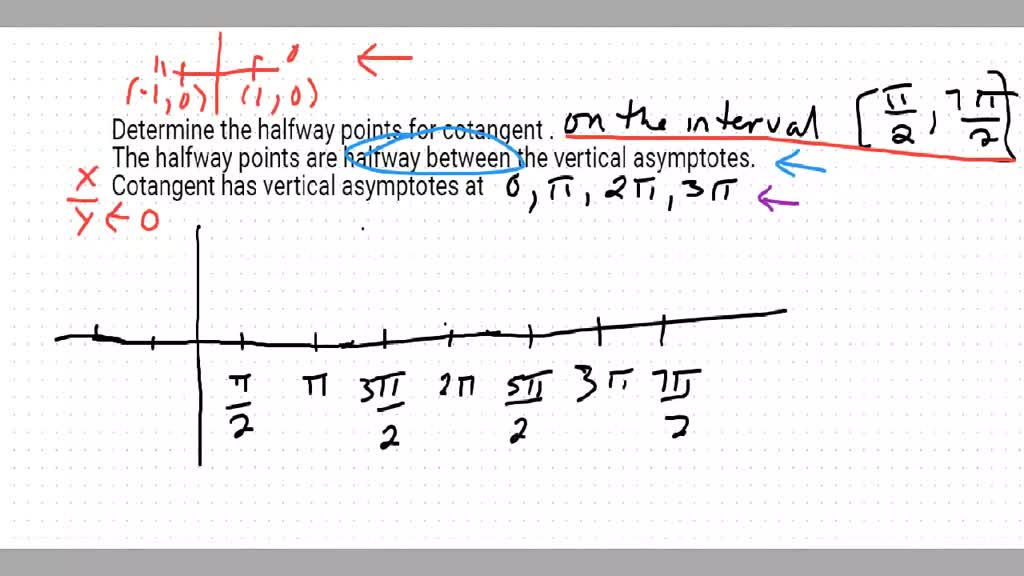 π 0
(-1, 0) (1, 0)
Determine the halfway points for cotangent . on the interval [π/2, 7π/2]
The halfway points are halfway between the vertical asymptotes.
Cotangent has vertical asymptotes at 0, π, 2π, 3π
x/y ← 0
π/2 π 3π/2 2π 5π/2 3π 7π/2